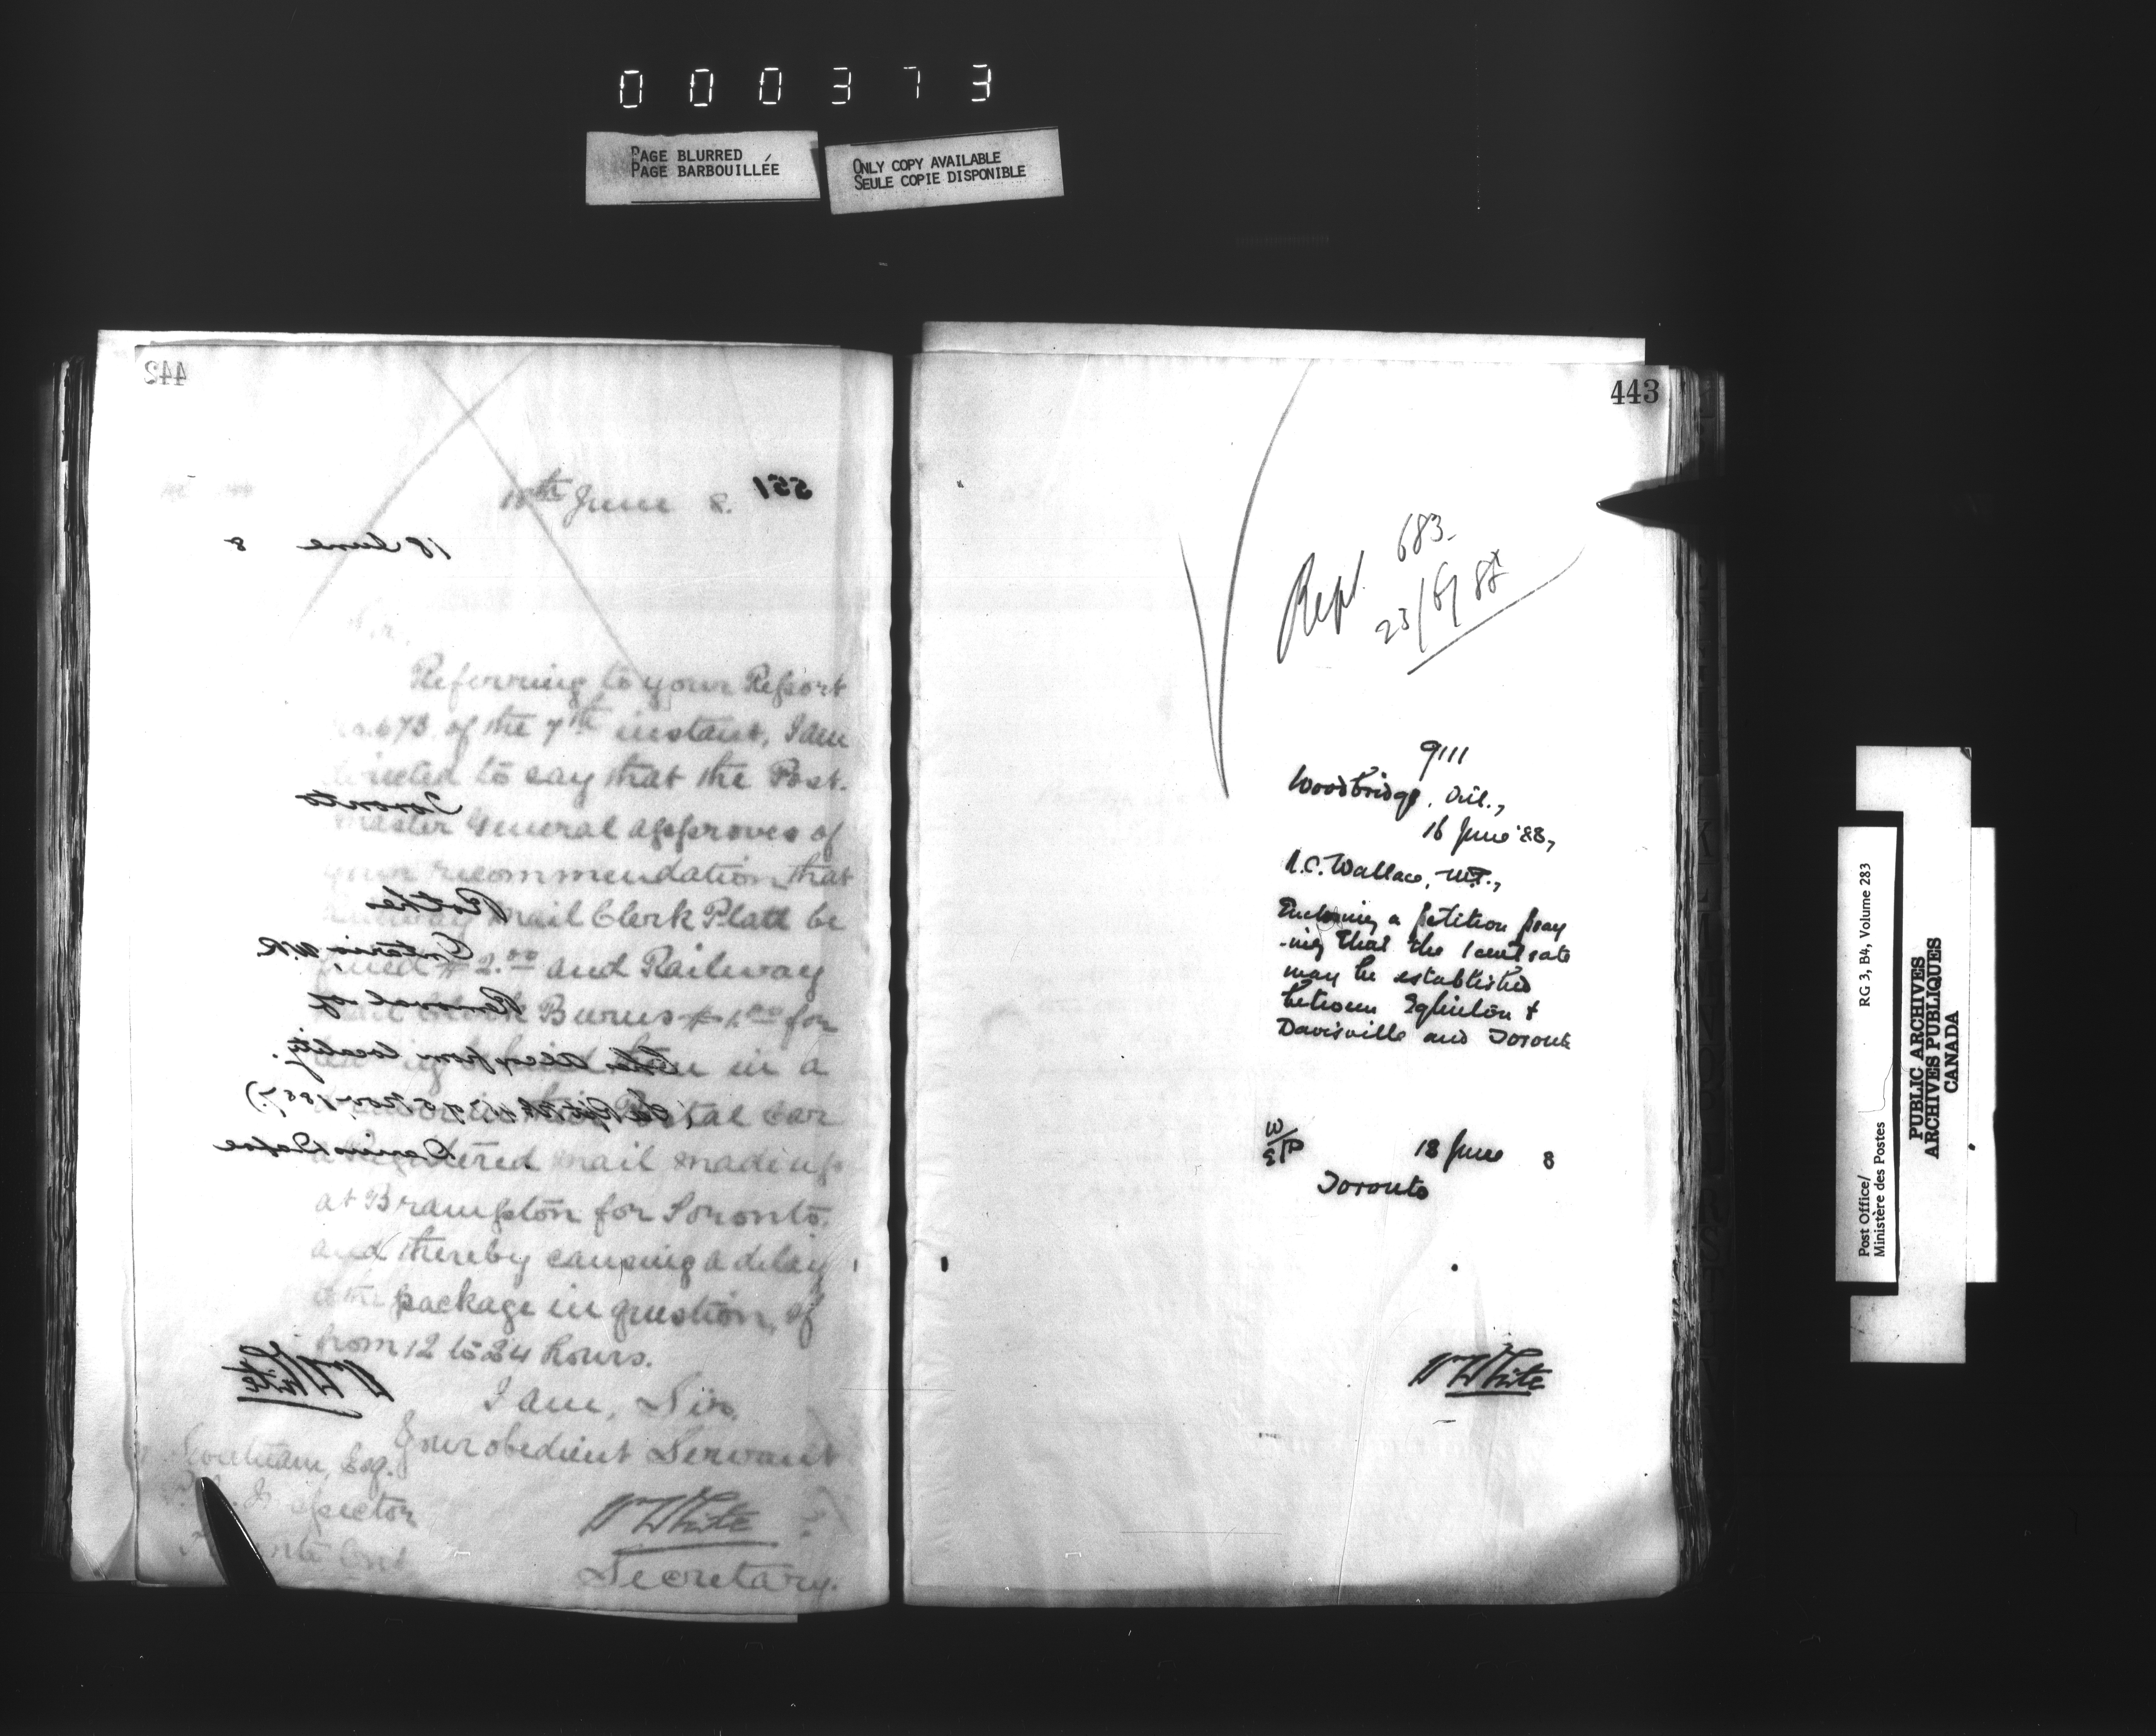 000373
PAGE BLURRED
PAGE BARBOUILLÉE
ONLY COPY AVAILABLE
SEULE COPIE DISPONIBLE
442
551
18th June 8.
18 June 8
Sir,
Referring to your Report
No. 673 of the 7th instant, I am
directed to say that the Post-
Toronto
master General approves of
your recommendation that
Railway Mail Clerk Platt be
fined $2.00 and Railway
Mail Clerk Burns $1.00 for
in a
Postal Car
a Registered Mail made up
at Brampton for Toronto,
and thereby causing a delay
to the package in question, of
from 12 to 24 hours.
W White
I am, Sir,
Your obedient Servant
W White
Secretary.
Esq.
P.O. Inspector
Toronto Ont
Ontario, W.R.
Removal of
from locality.
443
Rept. 683-
23/6/88
9111
Woodbridge, Ont.,
16 June '88,
N.C. Wallace, M.P.,
Enclosing a petition pray
-ing that the 1 cent rate
may be established
between Eglinton &
Davisville and Toronto
18 June 8
Toronto
W White
Post Office/
Ministère des Postes
RG 3, B4, Volume 283
PUBLIC ARCHIVES
ARCHIVES PUBLIQUES
CANADA